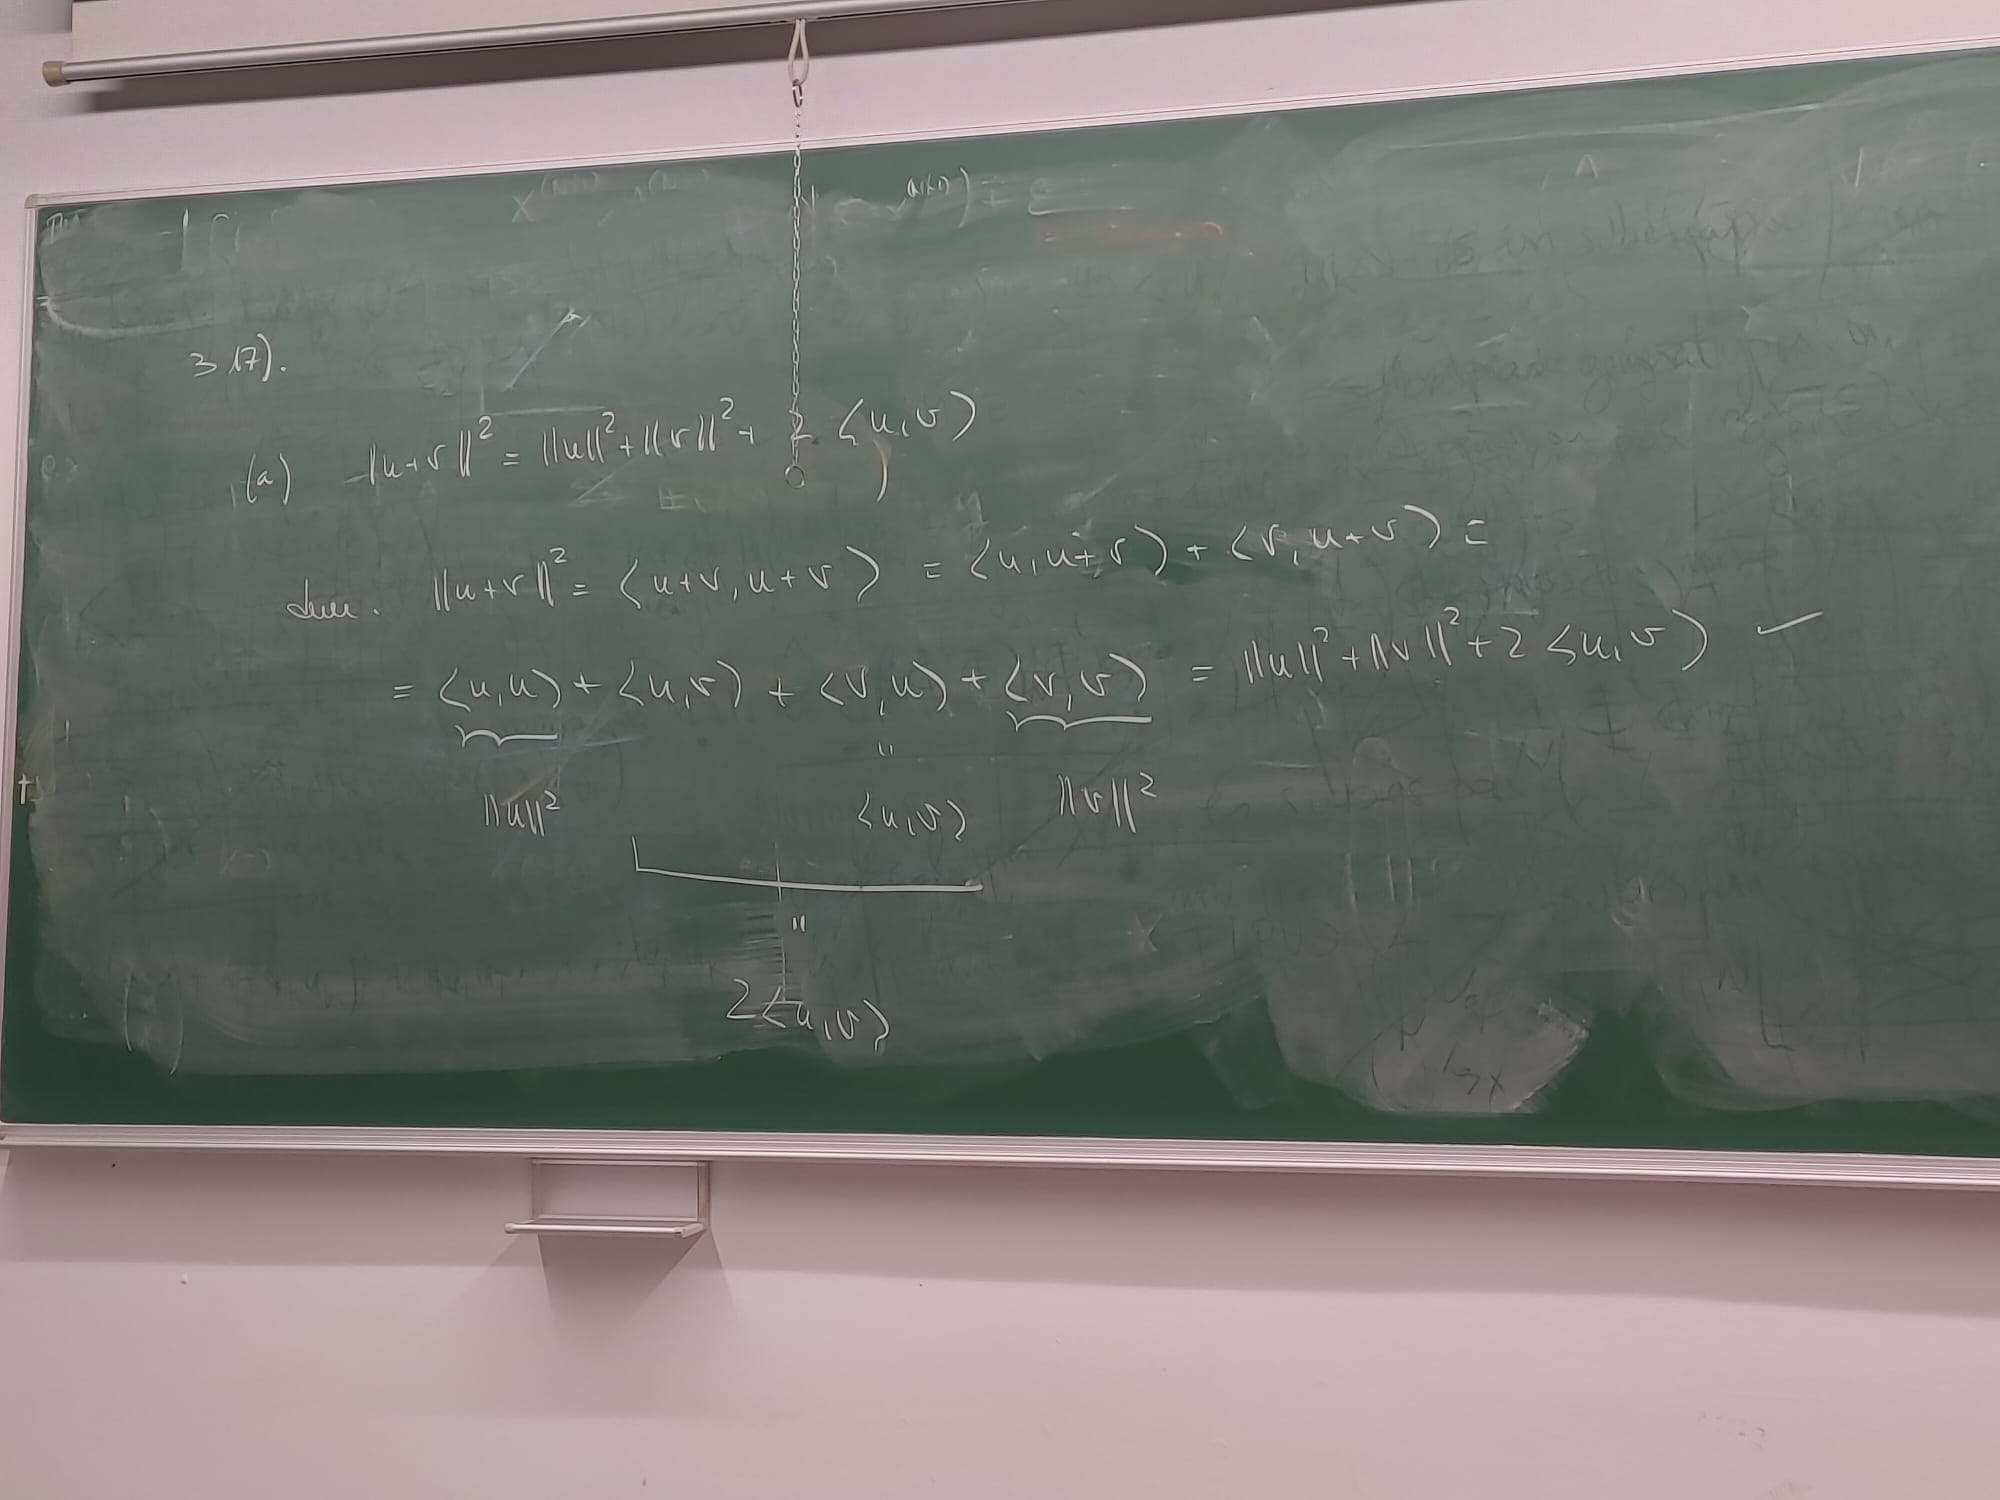 3 17).
(a) ||u+v||² = ||u||² + ||v||² + 2 <u,v>
dem. ||u+v||² = <u+v, u+v> = <u, u+v> + <v, u+v> =
= <u,u> + <u,v> + <v,u> + <v,v> = ||u||² + ||v||² + 2 <u,v> ✓
||u||² <u,v> ||v||²
2<u,v>